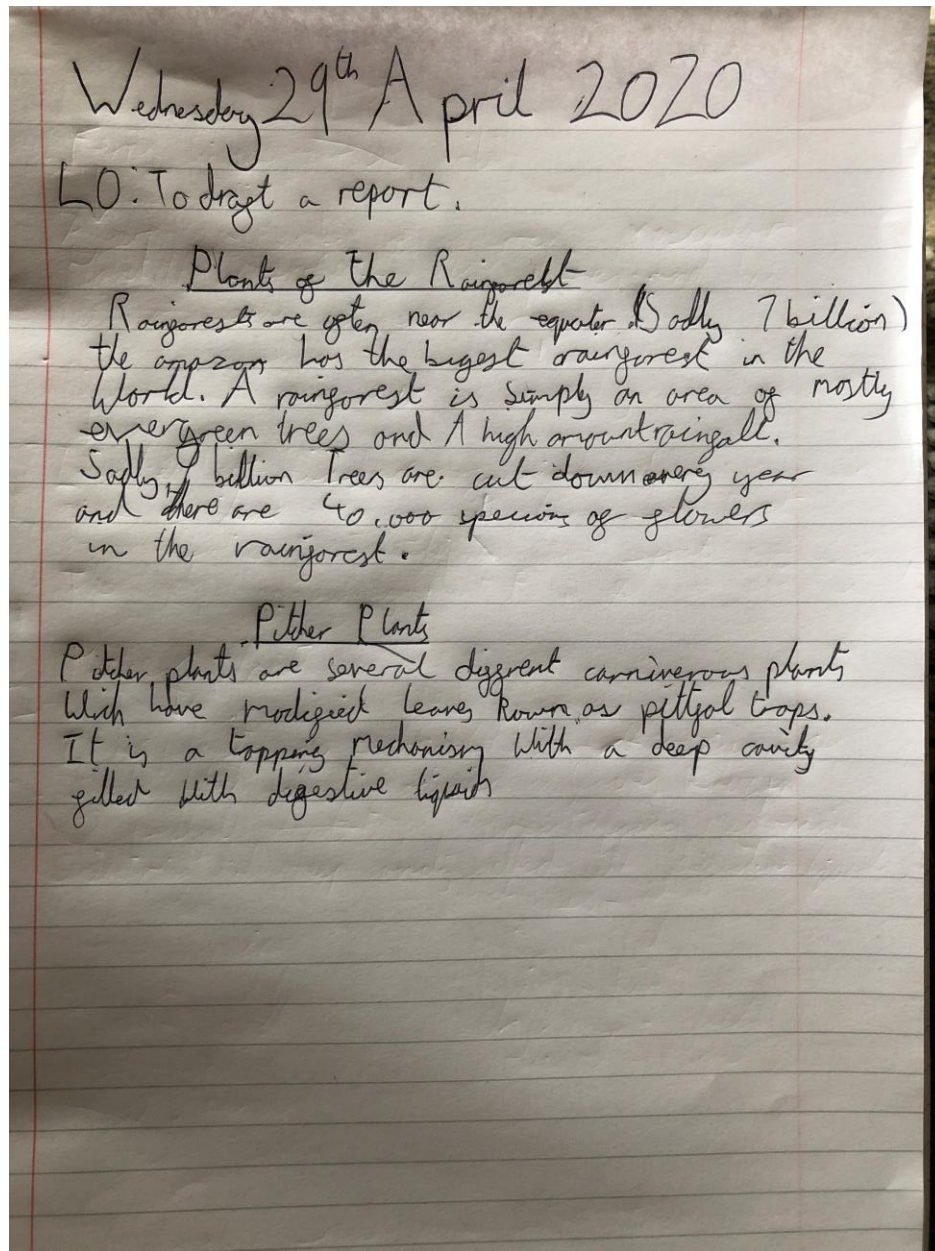 Wednesday 29th April 2020
LO: To draft a report.
Plants of the Rainforest
Rainforests are often near the equater. (Sadly 7 billion)
the amazon has the bigest rainforest in the
World. A rainforest is simply an area of mostly
evergreen trees and A high amount rainfall.
Sadly, 7 billion Trees are cut down every year
and there are 40,000 of flowers
in the rainforest.
Pitcher Plants
Pitcher plants are several diffrent carniverous plants
Wich have modified leaves Kown as pitfal traps.
It is a tapping mechanism With a deep cavity
filled With digestive liquid